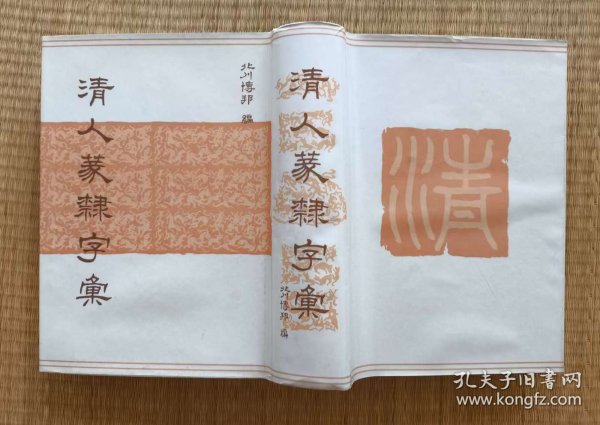 清人篆隷字彙
北川博邦 編
清人篆隷字彙
北川博邦 編
清
孔夫子旧書网
www.kongfz.com